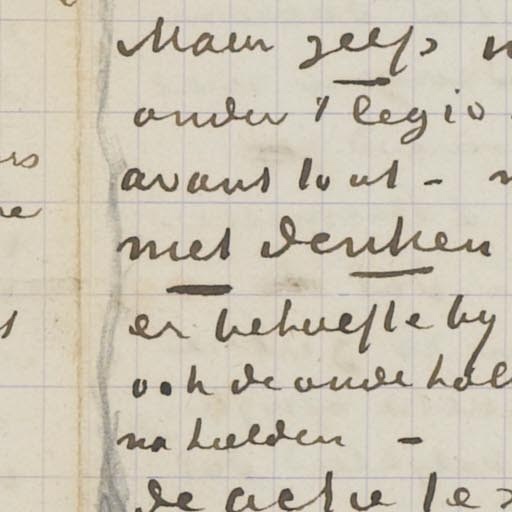 Maar zelfs
onder 't legio
avant tout -
met denken
er behoefte by
ook de oude holl
na helden -
de actie te